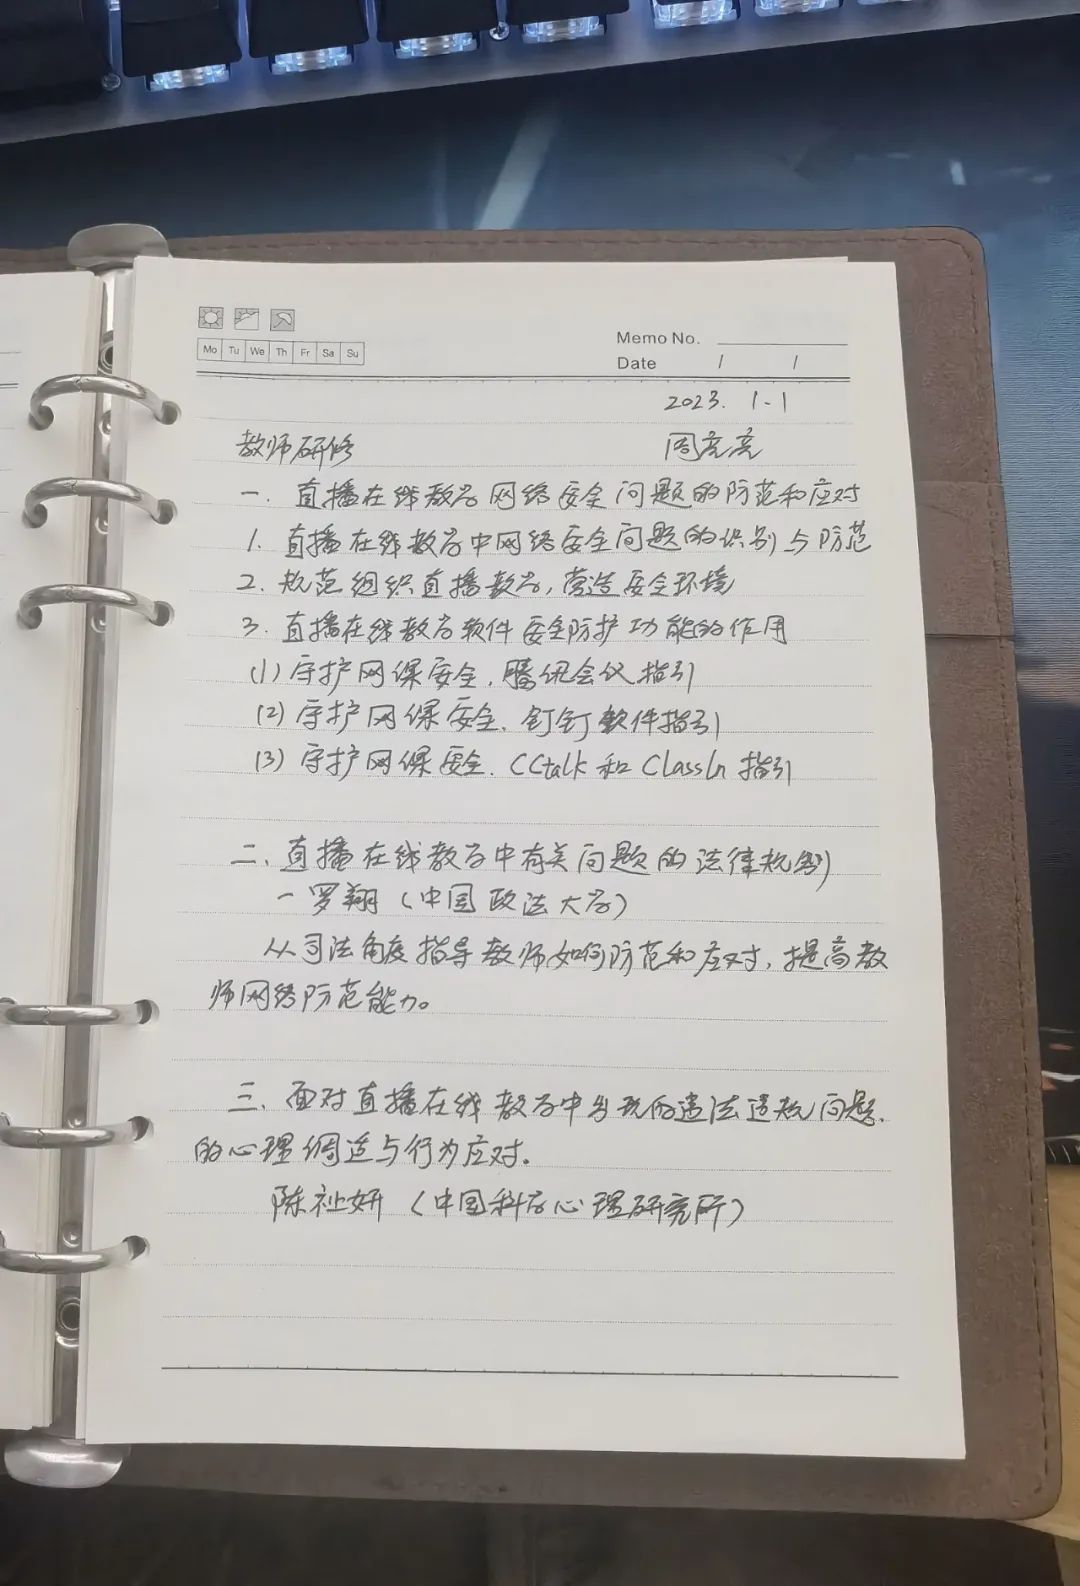 Memo No.
Mo Tu We Th Fr Sa Su
Date / /
2023. 1-1
教师研修 周亮亮
一. 直播在线教学网络安全问题的防范和应对
1. 直播在线教学中网络安全问题的识别与防范
2. 规范组织直播教学,营造安全环境
3. 直播在线教学软件安全防护功能的作用
(1) 守护网课安全.腾讯会议指引
(2) 守护网课安全.钉钉软件指引
(3) 守护网课安全.CCtalk和ClassIn指引
二、直播在线教学中有关问题的法律规制
一罗翔(中国政法大学)
从司法角度指导教师如何防范和应对,提高教
师网络防范能力。
三、面对直播在线教学中出现的违法违规问题.
的心理调适与行为应对.
陈祉妍(中国科学心理研究所)